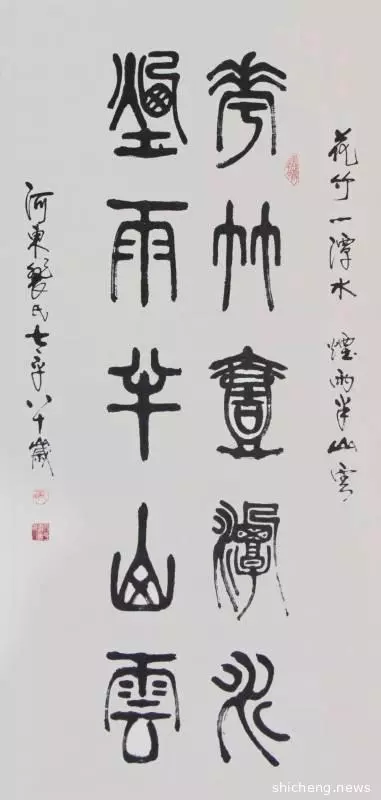 花竹一潭水 煙雨半山雲
花竹壹潭水
煙雨半山雲
河東 氏 八十歲
shicheng.news